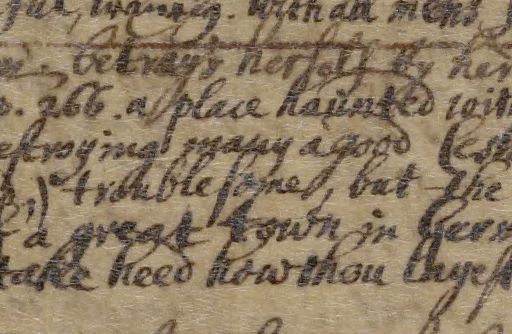 wanting. with all mens
betrays herself by her
266. a place haunted with
estroying many a good
troublesome, but the
a great town in Germ
take heed how thou layest